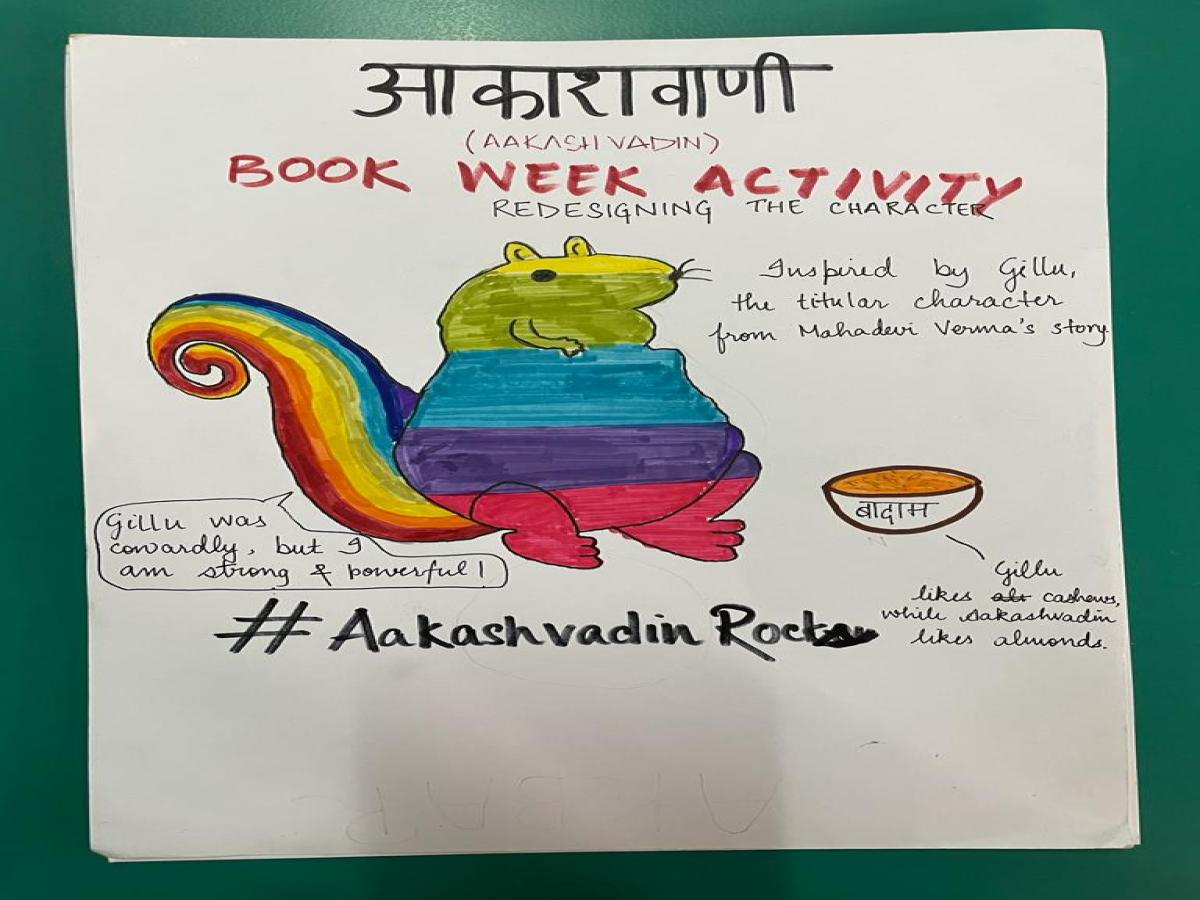 आकाशवाणी
(AAKASHVADIN)
BOOK WEEK ACTIVITY
REDESIGNING THE CHARACTER
Inspired by Gillu,
the titular character
from Mahadevi Verma's story
बादाम
Gillu was
cowardly, but I
am strong & powerful!
Gillu
likes cashews,
while Aakashvadin
likes almonds.
# Aakashvadin Rocks